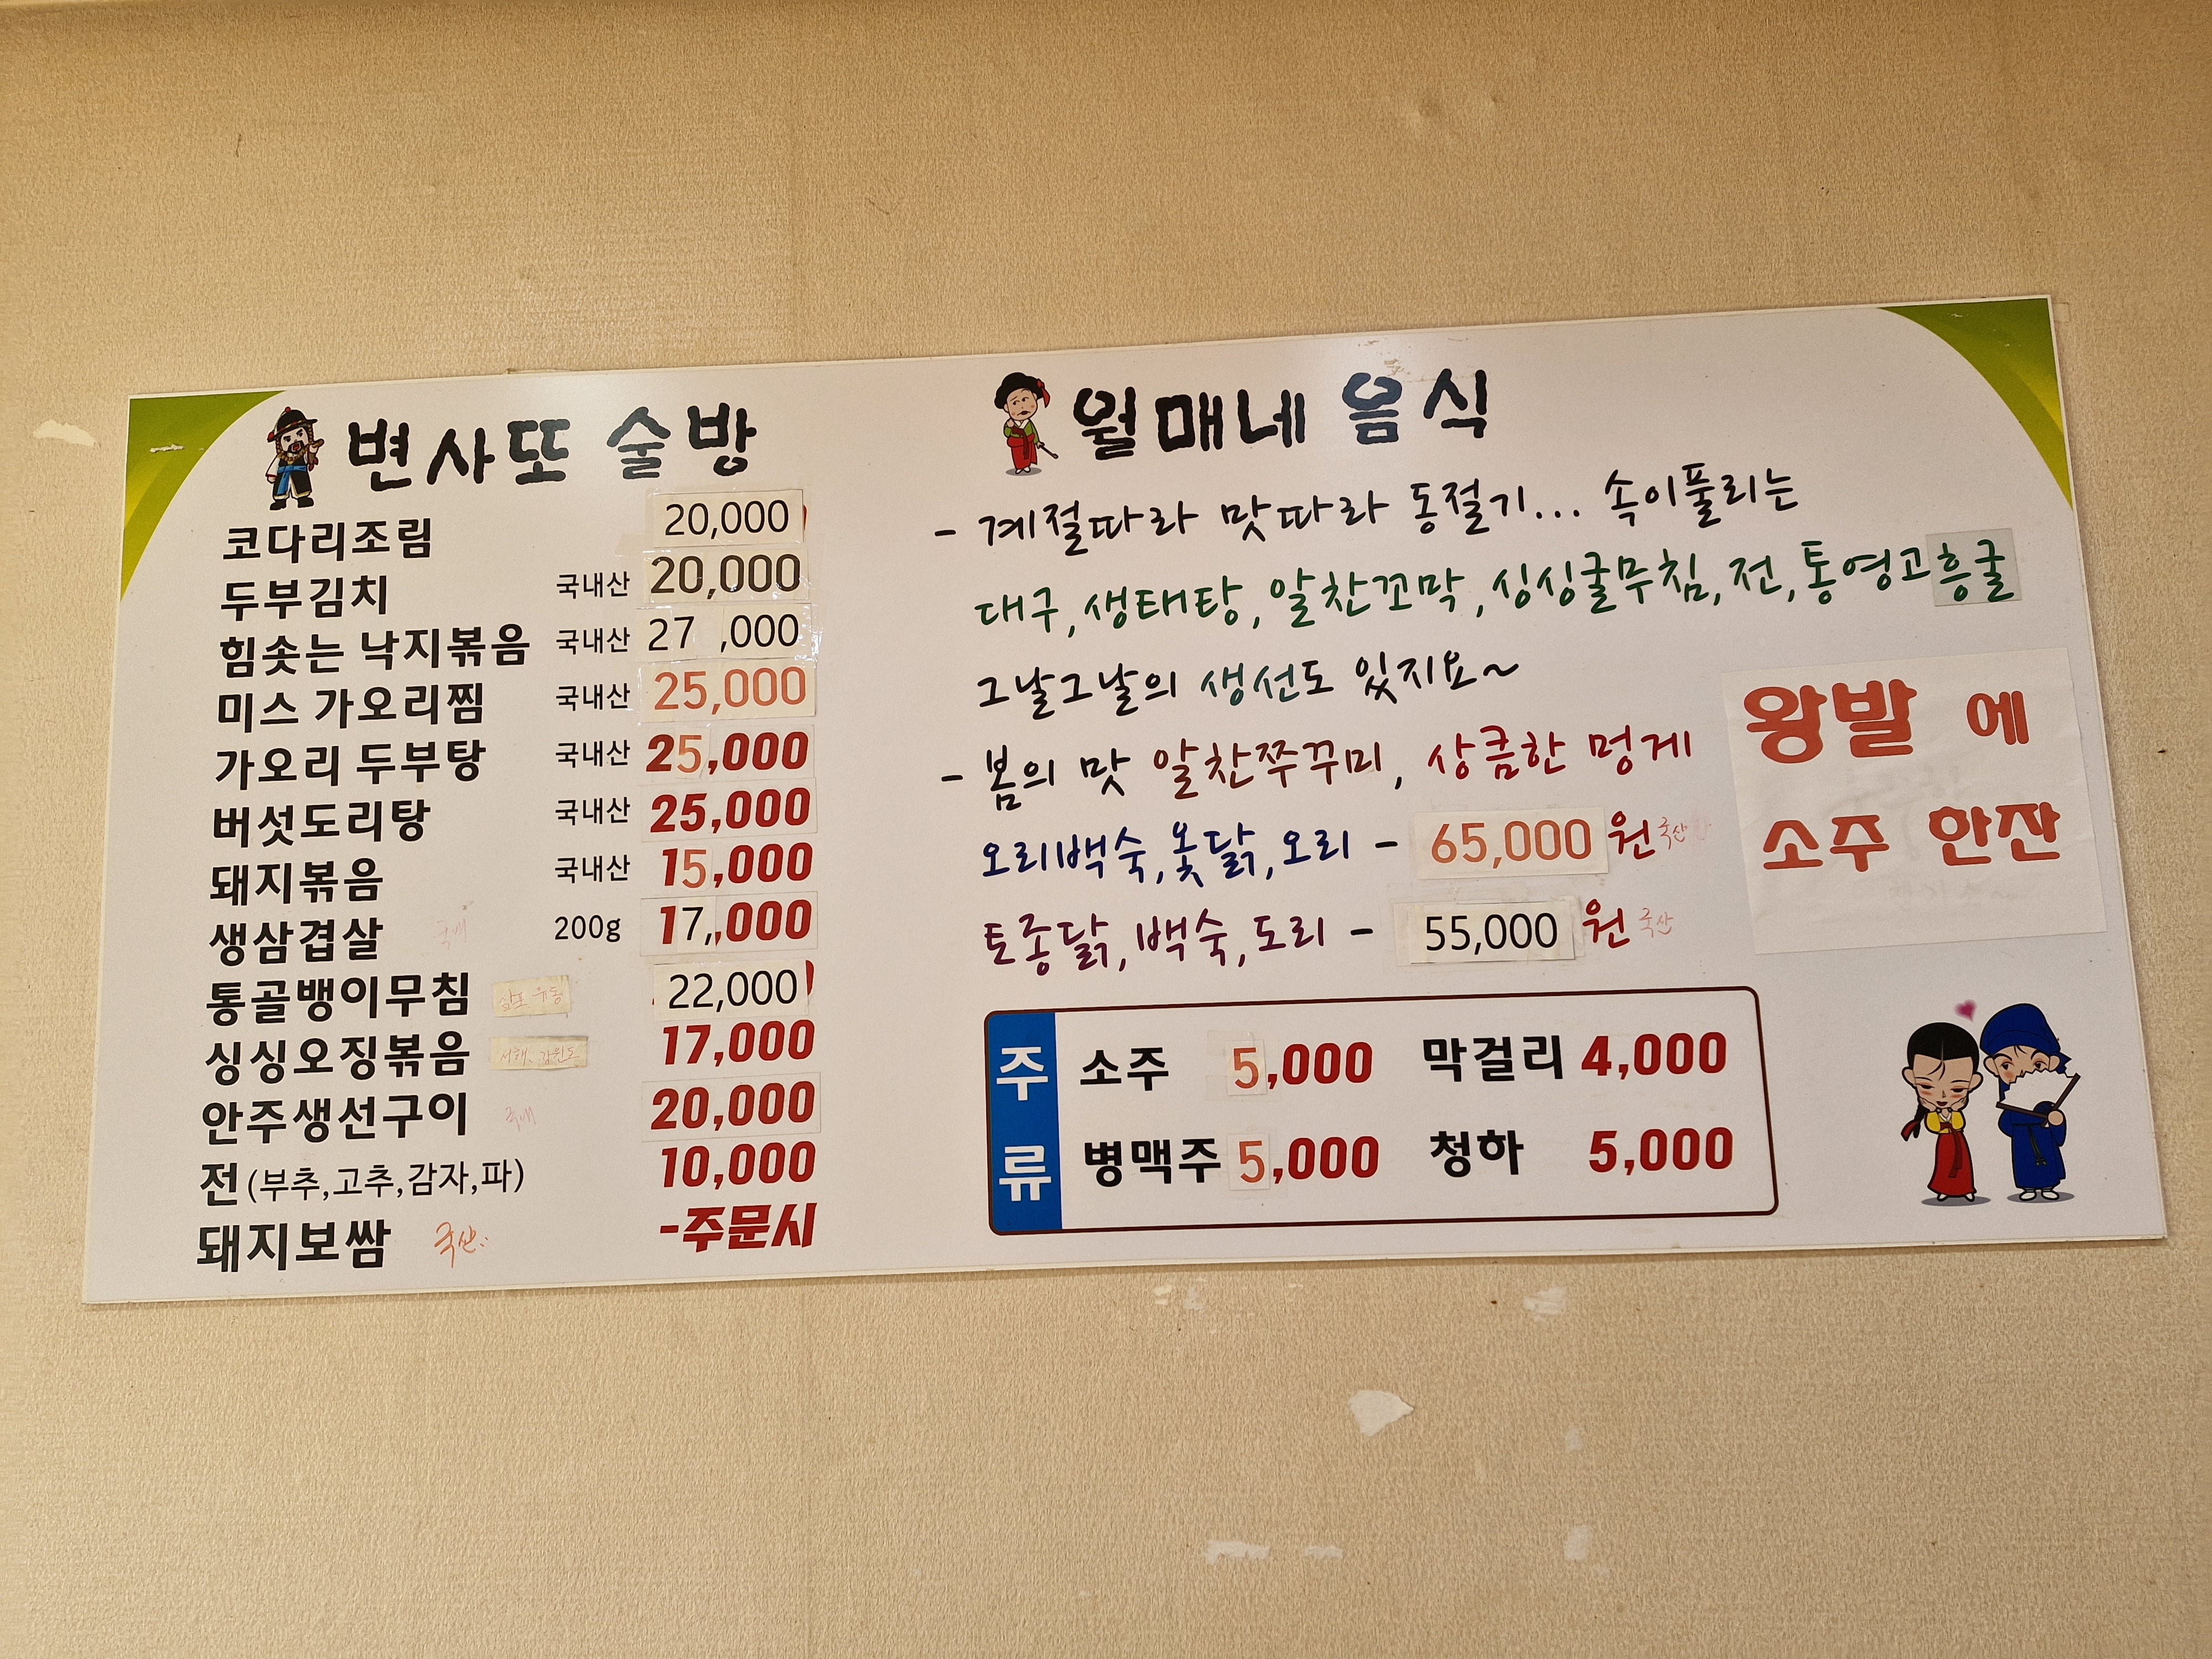 변사또 술방
코다리조림 20,000
두부김치 국내산 20,000
힘솟는 낙지볶음 국내산 27 ,000
미스 가오리찜 국내산 25,000
가오리 두부탕 국내산 25,000
버섯도리탕 국내산 25,000
돼지볶음 국내산 15,000
생삼겹살 국내 200g 17,,000
통골뱅이무침 22,000
싱싱오징볶음 서해, 강원도 17,000
안주생선구이 국내 20,000
전 (부추,고추,감자,파) 10,000
돼지보쌈 국산 -주문시
월매네 음식
- 계절따라 맛따라 동절기... 속이풀리는
대구,생태탕,알찬꼬막,싱싱굴무침,전,통영고흥굴
그날그날의 생선도 있지요~
- 봄의 맛 알찬쭈꾸미, 상큼한 멍게
오리백숙,옻닭,오리 - 65,000 원 국산
토종닭,백숙,도리 - 55,000 원 국산
왕발 에
소주 한잔
주류
소주 5,000 막걸리 4,000
병맥주 5,000 청하 5,000